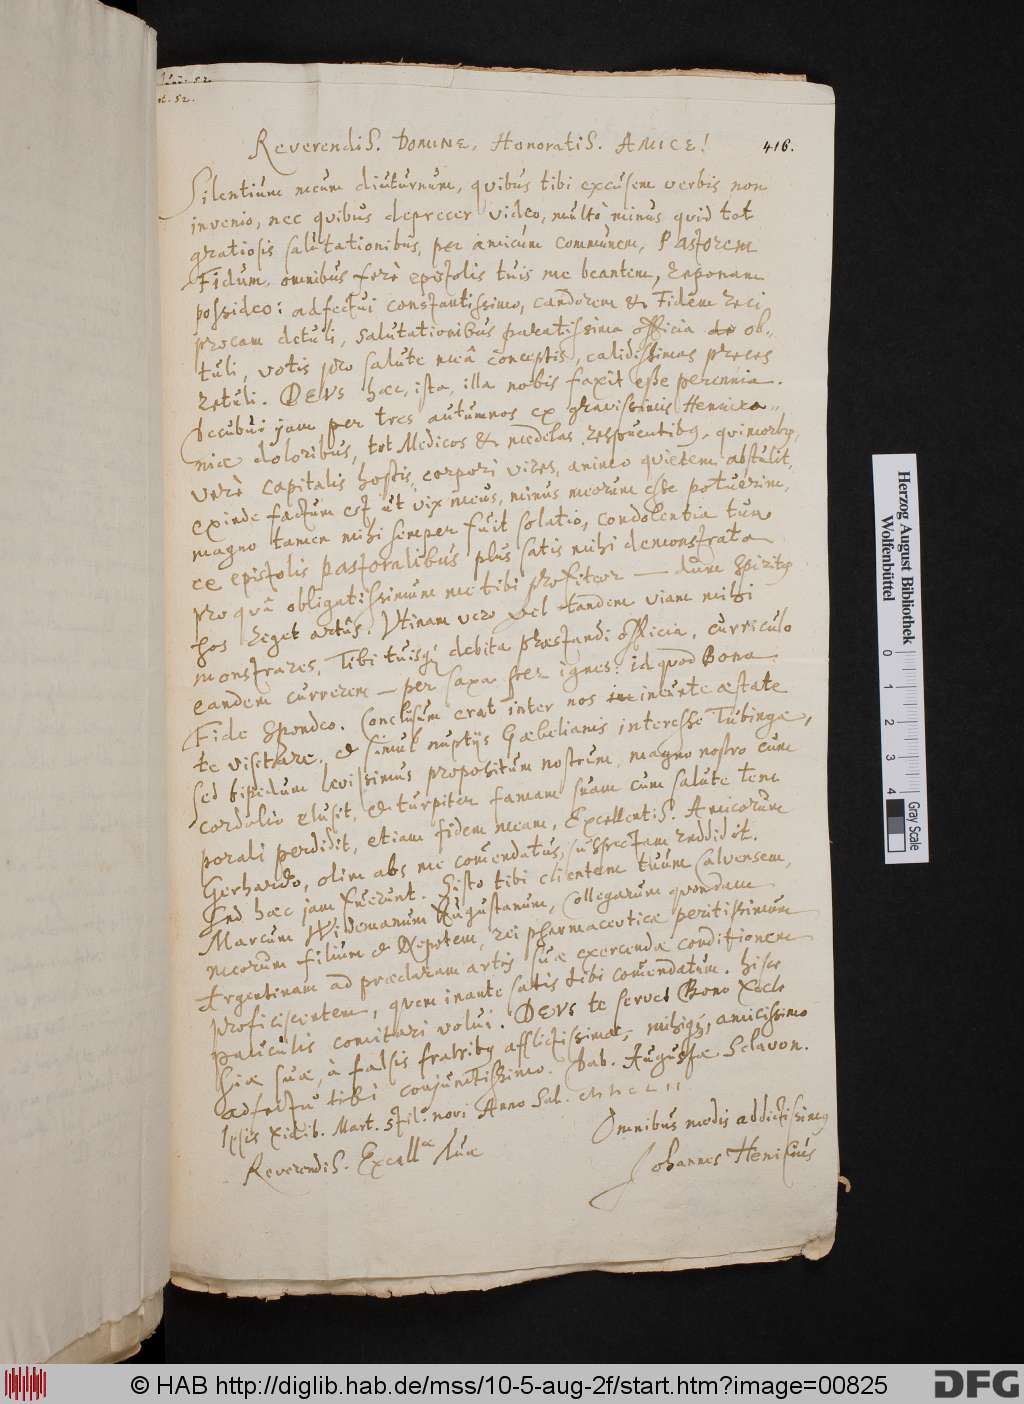 ot. 52.
ReverendiS. DOMINE, HonoratiS. AMICE!
416.
Silentium meum diuturnum, quibus tibi excusem verbis non
invenio, nec quibus deprecer video, multò minus quid tot
gratiosis salutationibus, per amicum communem, Pastorem
Fidum, omnibus ferè epistolis tuis me beantem, reponam
possideo: adfectui constantissimo, candorem & Fidem reci
procam detuli, salutationibus paratissima officia ob-
tuli, votis pro salute meâ conceptis, calidissimas preces
retuli. DEUS haec, ista, illa nobis faxit esse perennia.
Decubui jam per tres autumnos ex gravissimis Hemicra-
niæ doloribus, tot Medicos & medelas respuentibq, qui morbq,
verè capitalis hostis, corpori vires, animo quietem abstulit,
exinde factum est ut vix meus, minus meorum esse potuerim,
magno tamen mihi semper fuit solatio, condolentia tua
ce epistolis pastoralibus plus satis mihi demonstrata
pro quâ obligatissimum me tibi profiteor — dum spiritq
hos reget artûs. Utinam vero vel tandem viam mihi
monstrares, Tibi tuisq; debita præstandi officia, curriculo
eandem currerem — per saxa per ignes: id quod Bona
Fide spondeo. Conclusum erat inter nos ineunte æstate
te visitare, & simul nuptijs Gœbelianis interesse Tubingæ,
sed bipedum levissimus propositum nostrum, magno nostro cum
cordolio elusit, & turpiter famam suam cum salute tem
porali perdidit, etiam fidem meam, ExcellentiS. Amicorum
Gerhardo, olim abs me comendatus, suspectam reddidit.
Sed hæc jam fuerunt. Sisto tibi clientem tuum Calvensem,
Marcum Widemanum Augustanum, Collegarum quondam
meorum filium & Nepotem, rei pharmaceuticæ peritissimum
Argentinam ad præclaram artis suæ exercendæ conditionem
proficiscentem, quem inante satis tibi comendatum, hisce
pauculis comitari volui. DEUS te servet Bono Eccle
siæ suæ, à falsis fratribq afflictissimæ, mihiq;, amicissimo
adfectu tibi conjunctissimo. Dab. Augustæ Sclavon.
Ipsis Xidib. Mart. stil. novi Anno Sal.
ReverendiS. Excell.æ Tuæ
Omnibus modis addictissimq
Johannes Henisius
Herzog August Bibliothek
Wolfenbüttel
0 1 2 3 4
Gray Scale
© HAB http://diglib.hab.de/mss/10-5-aug-2f/start.htm?image=00825
DFG